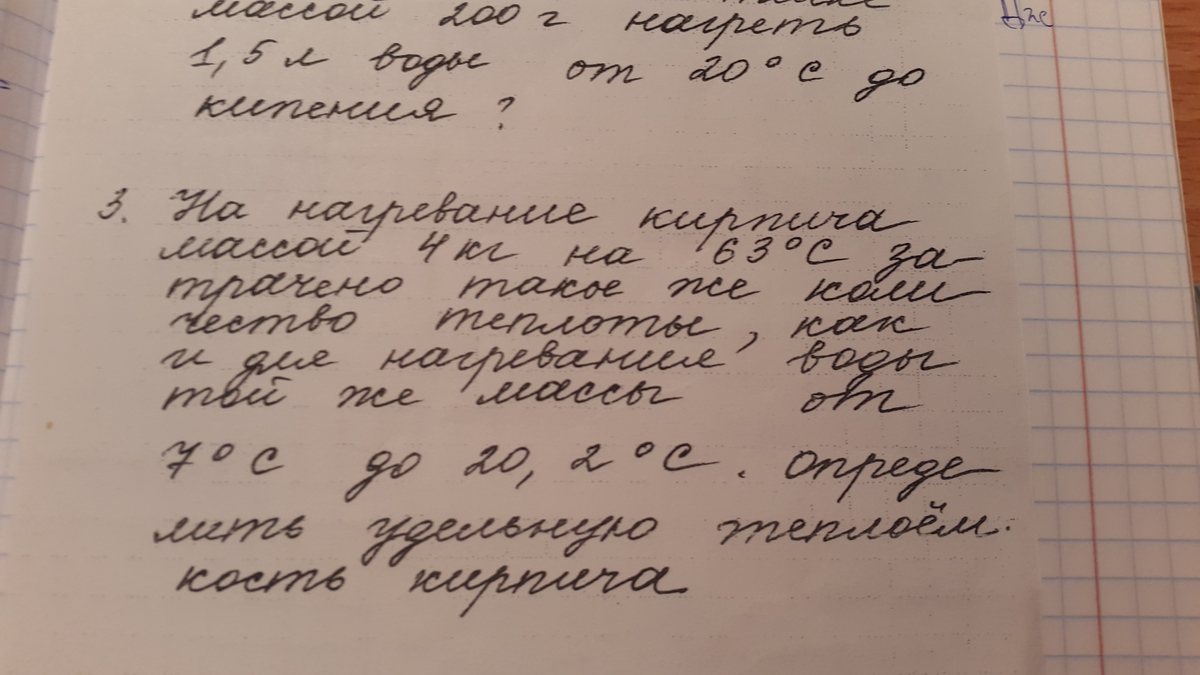 массой 200 г нагреть
1,5 л воды от 20°С до
кипения?
3. На нагревание кирпича
массой 4 кг на 63°С за-
трачено такое же коли-
чество теплоты, как
и для нагревания воды
той же массы от
7°С до 20,2°С. Опреде-
лить удельную теплоём-
кость кирпича